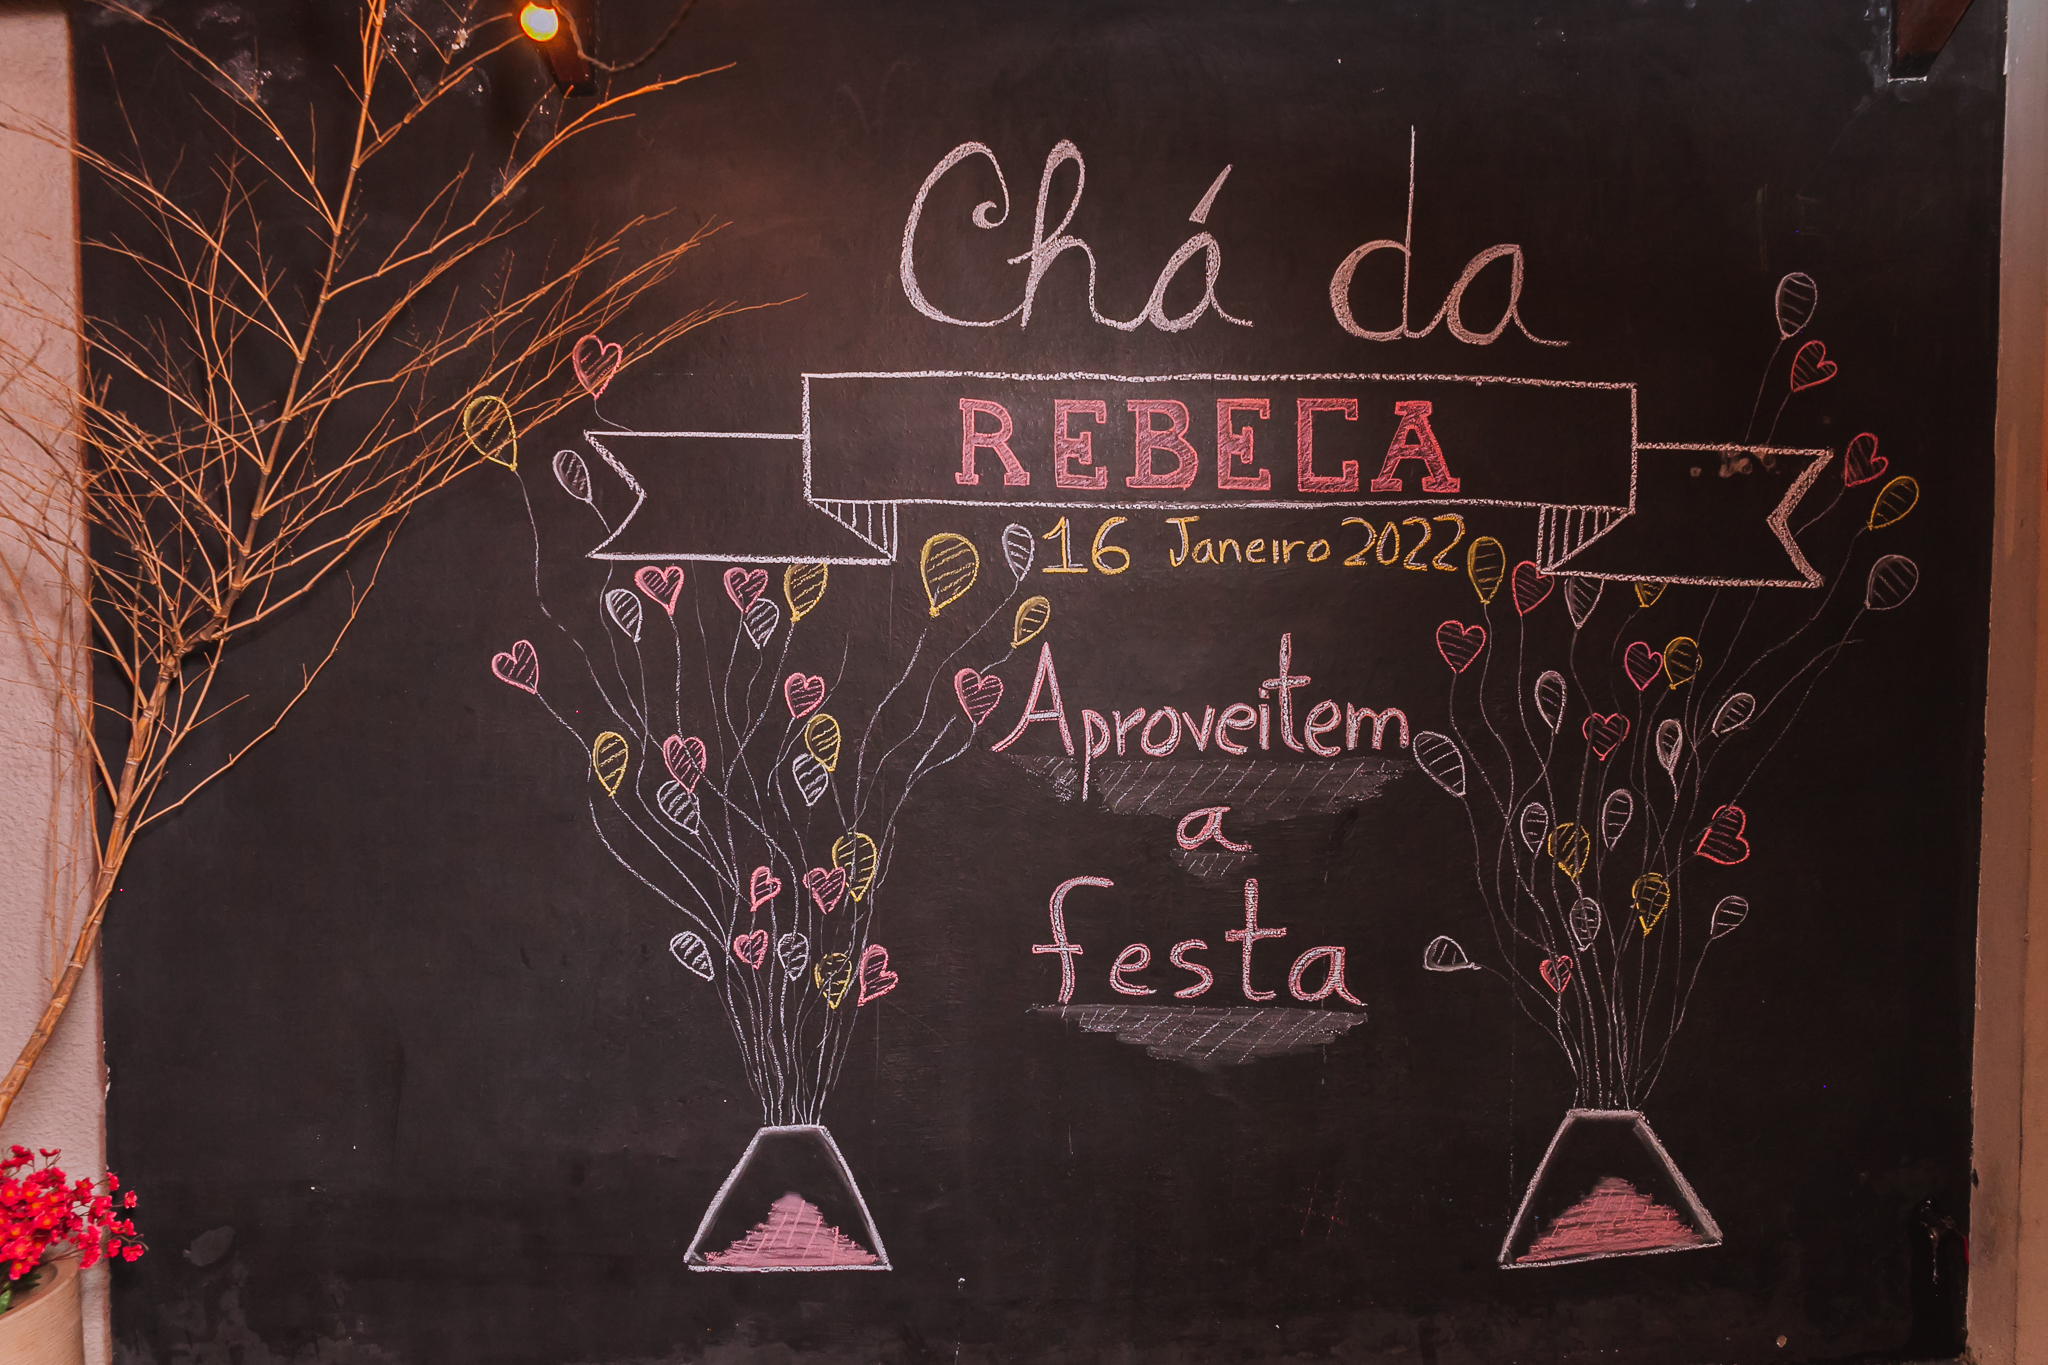 Chá da
REBECA
16 Janeiro 2022
Aproveitem
a
festa